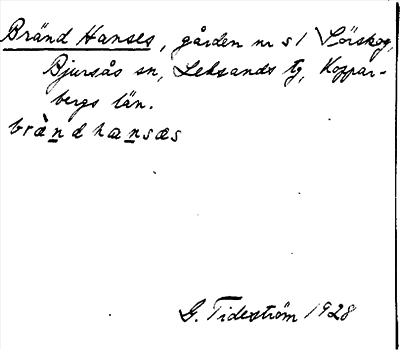 Bränd Hanses, gården nr 51 Sörskog,
Bjursås sn, Leksands tg, Koppar-
bergs län.
brànd hansæs
G. Tideström 1928